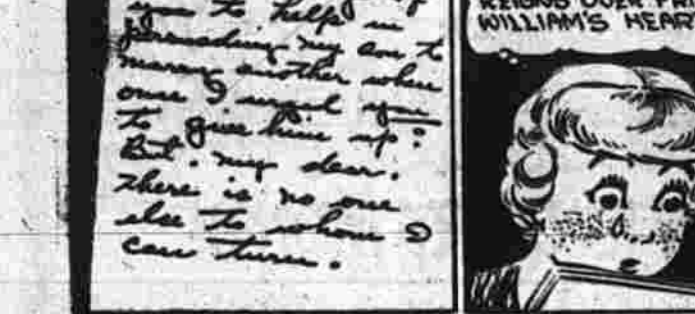 you to help in
persuading my son to
marry another when
once I urged you
to give him up?
But, my dear,
there is no one
else to whom I
can turn.
REIGNS OVER
WILLIAM'S HEAR